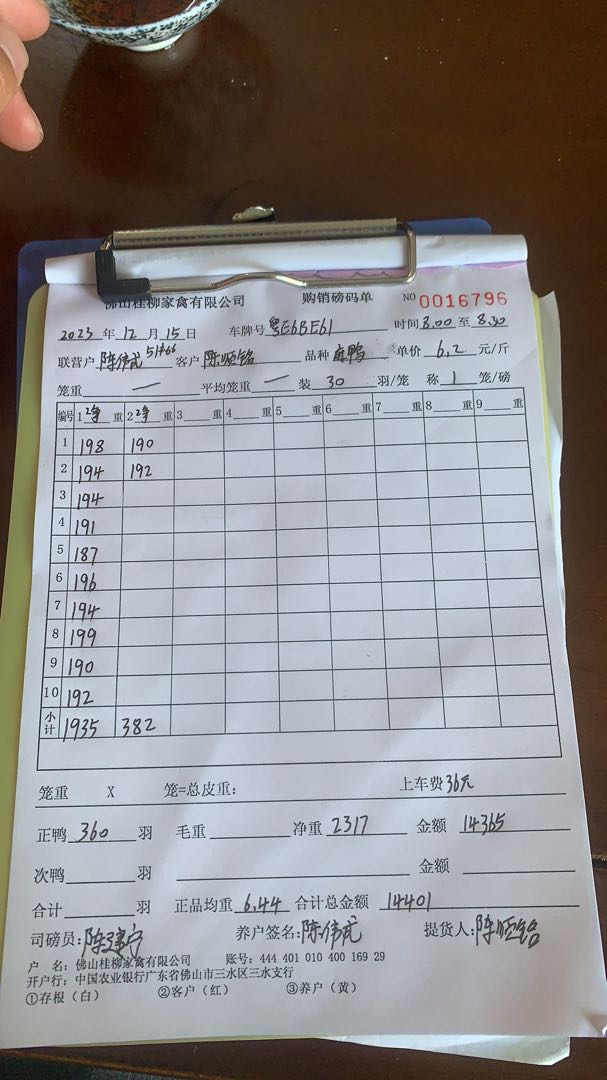 佛山桂柳家禽有限公司 购销磅码单 NO 0016796
2023 年 12 月 15 日 车牌号 粤E6BE61 时间 8.00 至 8.30
联营户 陈伟武 51466 客户 陈顺铭 品种 麻鸭 单价 6.2 元/斤
笼重 一 平均笼重 一 装 30 羽/笼 称 1 笼/磅
编号 1 净 重 2 净 重 3 重 4 重 5 重 6 重 7 重 8 重 9 重
1 198 190
2 194 192
3 194
4 191
5 187
6 196
7 194
8 199
9 190
10 192
小计 1935 382
笼重 X 笼=总皮重: 上车费 36元
正鸭 360 羽 毛重 净重 2317 金额 14365
次鸭 羽 金额
合计 羽 正品均重 6.44 合计总金额 14401
司磅员: 养户签名: 陈伟武 提货人: 陈顺铭
户 名: 佛山桂柳家禽有限公司 账号: 444 401 010 400 169 29
开户行: 中国农业银行广东省佛山市三水区三水支行
①存根(白) ②客户(红) ③养户(黄)